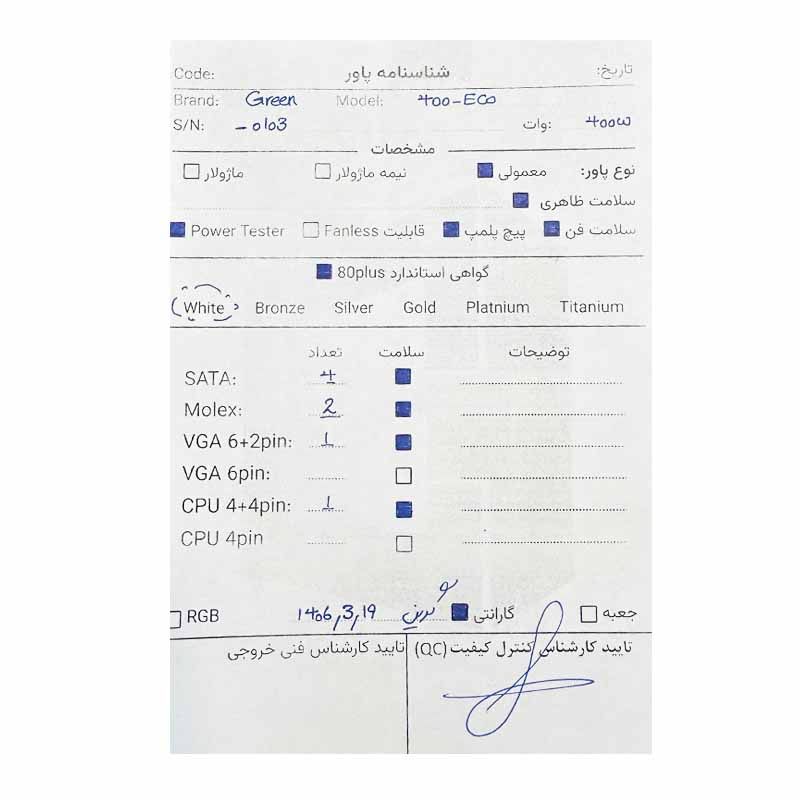 Code: شناسنامه پاور تاریخ:
Brand: Green Model: 400-ECO
S/N: -0103 وات: 400W
مشخصات
نوع پاور: معمولی نیمه ماژولار ماژولار
سلامت ظاهری
سلامت فن پیچ پلمپ قابلیت Fanless Power Tester
گواهی استاندارد 80plus
White Bronze Silver Gold Platnium Titanium
تعداد سلامت توضیحات
SATA: 4
Molex: 2
VGA 6+2pin: 1
VGA 6pin:
CPU 4+4pin: 1
CPU 4pin
جعبه گارانتی گرین 1406,3,19 RGB
تایید کارشناس کنترل کیفیت (QC) تایید کارشناس فنی خروجی